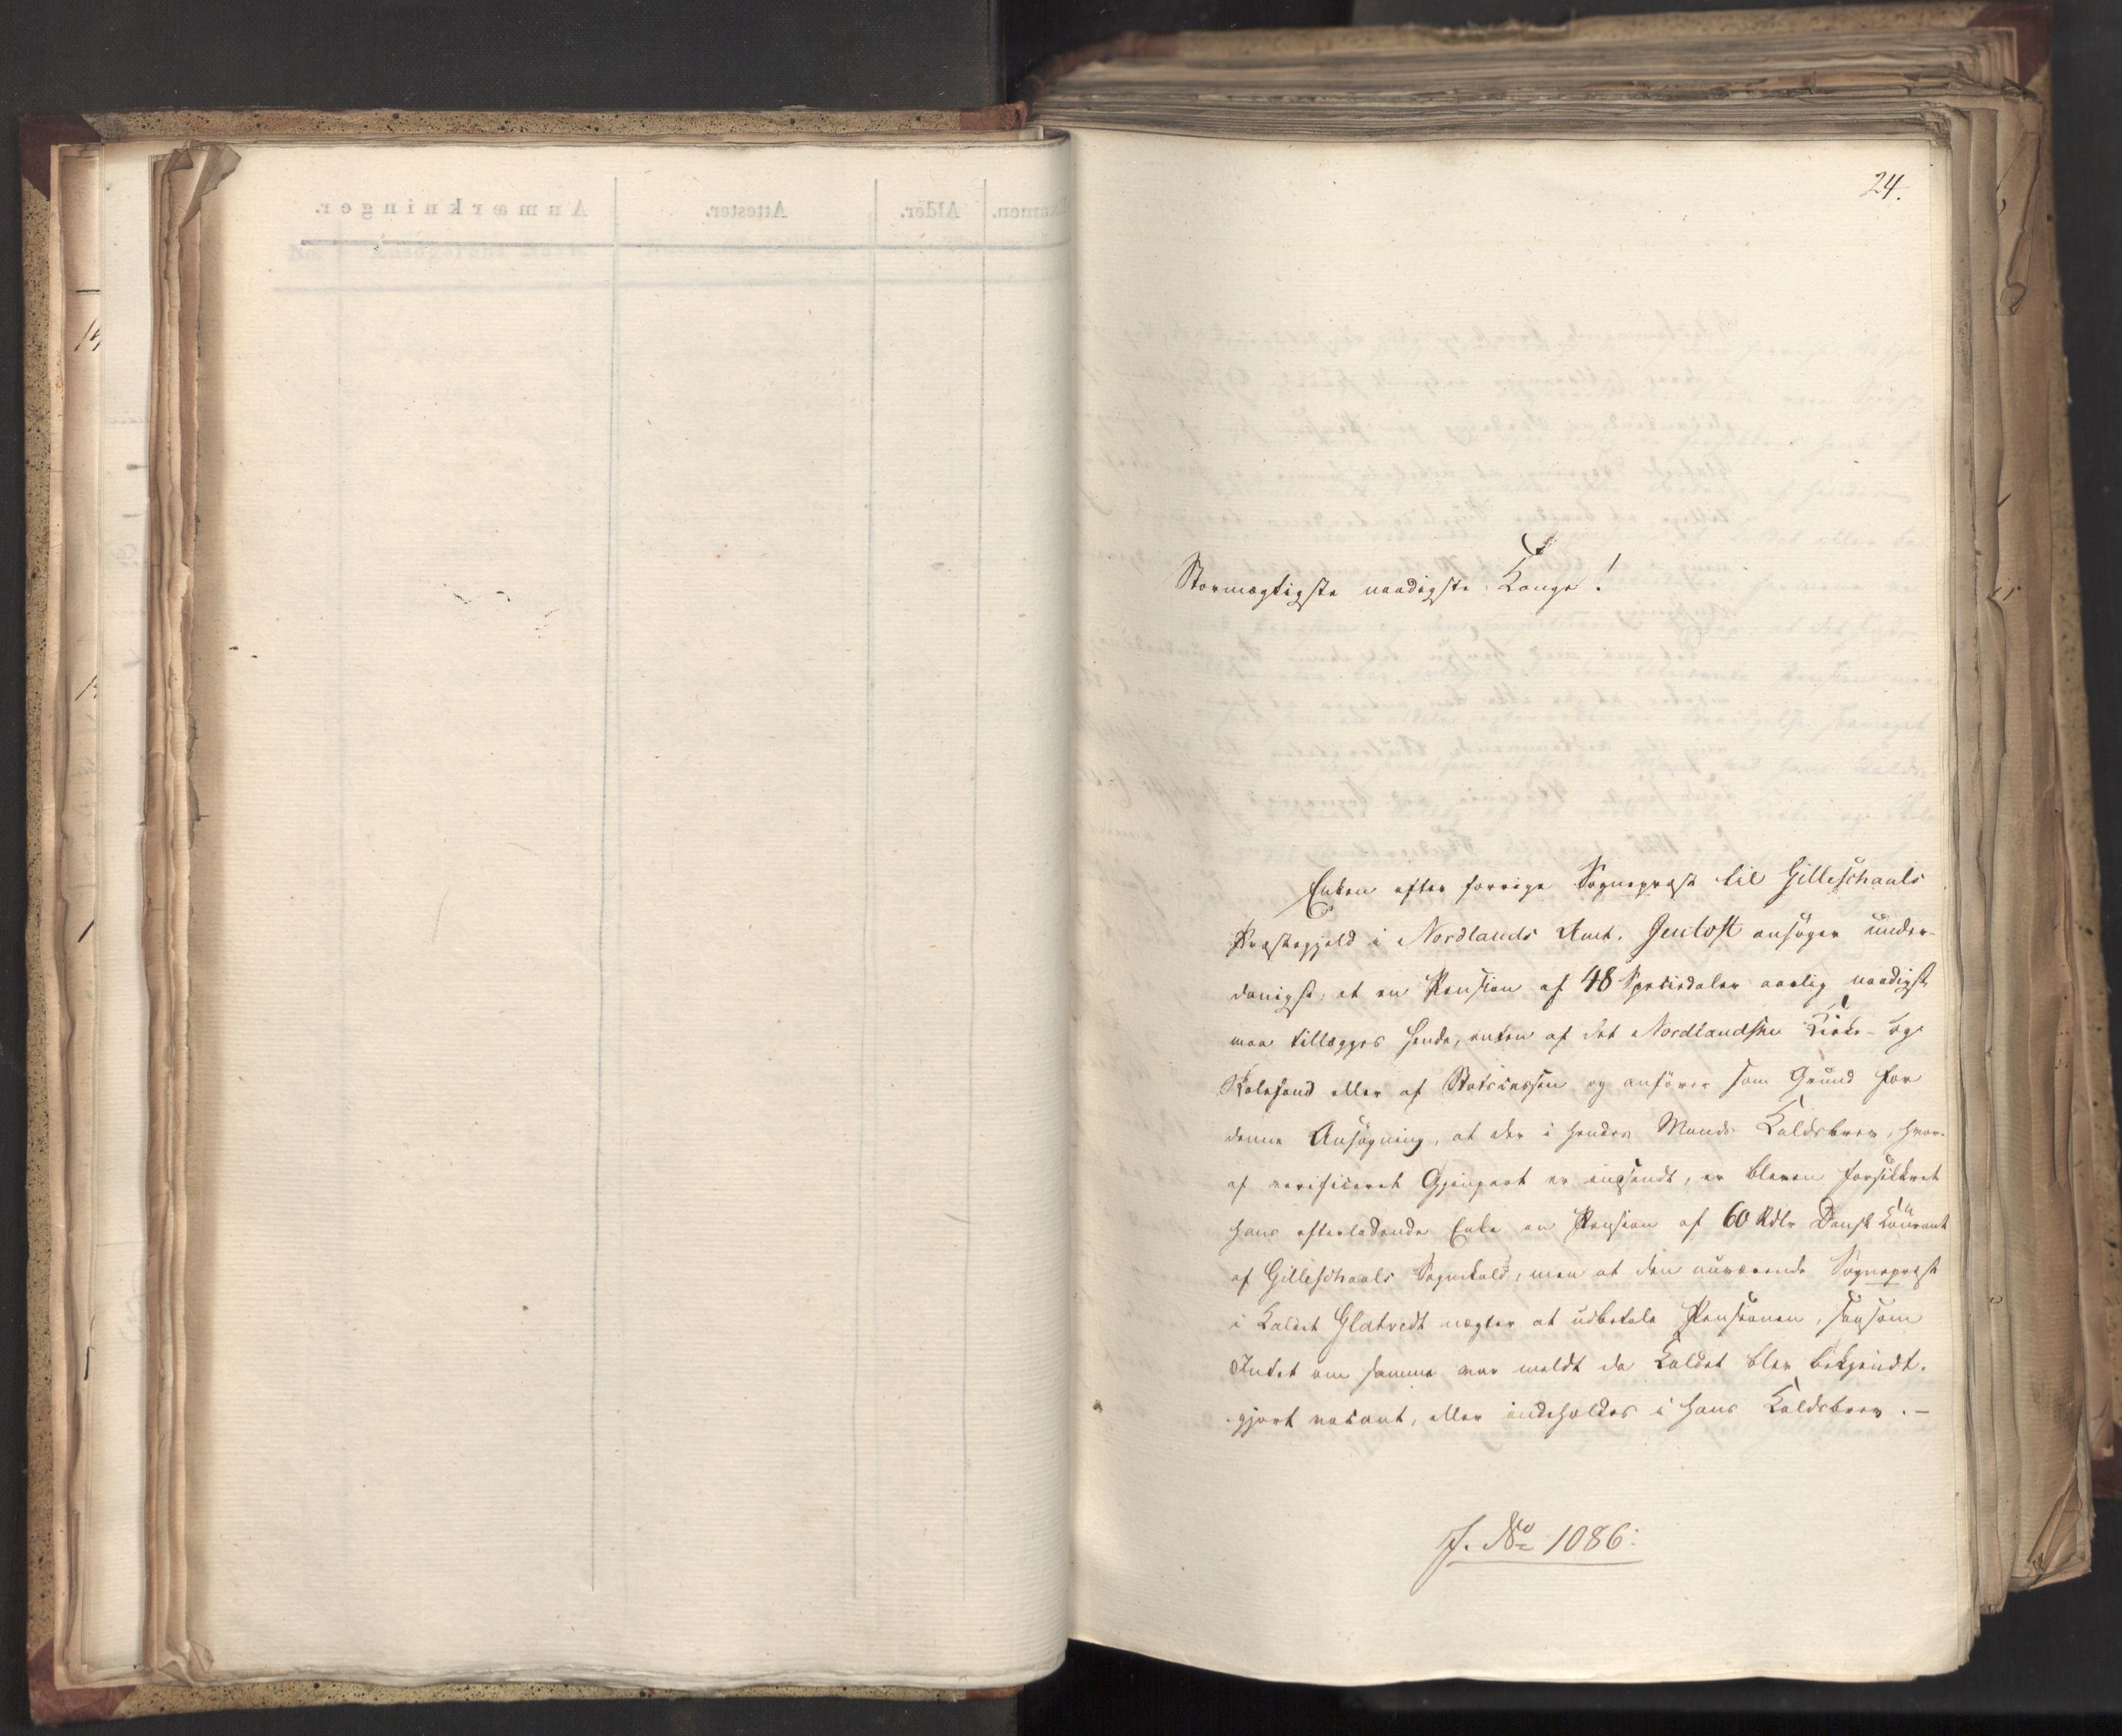 24.
Stormægtigste naadigste Konge!
Enken efter forrige Sognepræst til Gilleschaals
Præstegjeld i Nordlands Amt, Jentoft ansøger under-
danigst: at en Pension af 48 Speciedaler aarlig naadigst
maa tillægges hende, enten af det Nordlandske Kirke- og
Skolefond eller af Statscassen og anfører som Grund for
denne Ansøgning, at der i hendes Mands Kaldsbrev, hvor-
af verificeret Gjenpart er indsendt, er bleven forsikkret
hans efterladende Enke en Pension af 60 Rdlr Dansk Courant
af Gilleschaals Sognekald, men at den nuværende Sognepræst
i Kaldet Glatvedt nægter at udbetale Pensionen, saasom
Intet om samme var meldt da Kaldet blev bekjendt-
gjort vacant, eller indeholdes i hans Kaldsbrev. -
J. No 1086.
Anmærkninger.
Attester.
Alder.